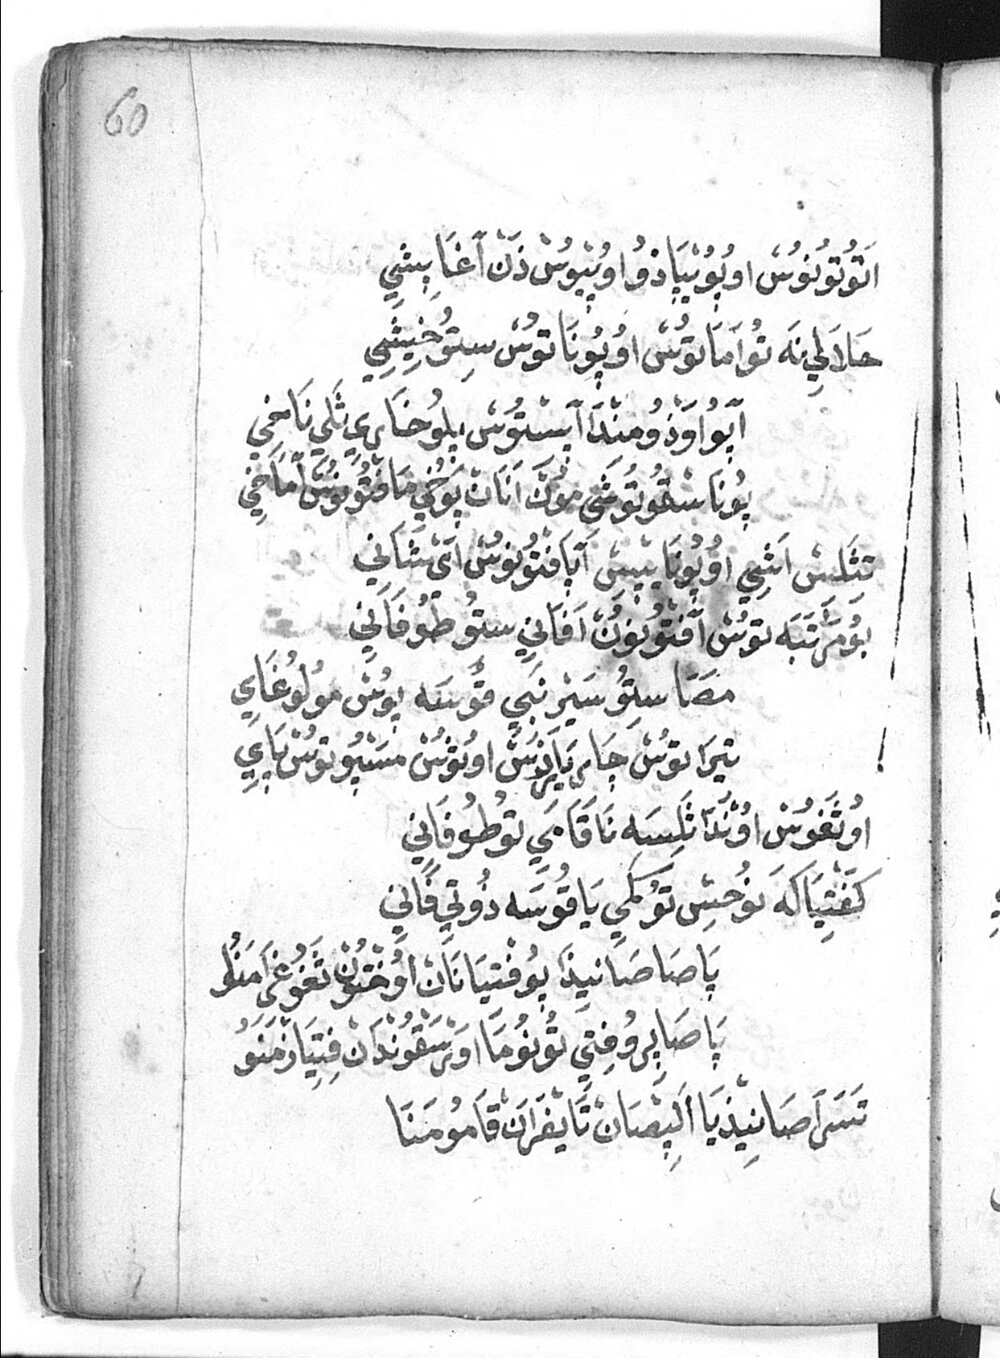 60
اَتُوتُونُوسْ اوپُوُيْپَاذُو اوُپِيوُسْ ذَنْ آغَاپِشِي
حَلالِي نَه تُو اَمَاتُسْ اوُ پُونَا تُوسْ سِتُو خِيشِي
آپُوُ اَوْذُو مَنْدَا آيْسْتُوسْ پِلُوخَارِي ثَلِي نَاخِي
پُونَا سْقُوتُوشَيْ مُونْكَ اَنَانْ پُوخِي مَا فْتُونُوسْ اَمَاخِي
تِثَلِسْ اَشِي اوُ پُونَا پِيسْ آپَافْتُونُوسْ آيْ شَانِي
پُو مَرْتَبَه تُوسْ آفْتُونُونْ اَفَانِي سْتُو طُوفَانِي
مَصَا سِتُو سَيْر نَبِي قُوسَه پُوسْ مُولُوغَايِ
تِيرَا تُوسْ جَارِيَايْرِسْ اوُتُوسْ مَسْپُوتُوسْ پَايِ
اوُ تَغُوسْ اوُنْدَا ثَلِسَه نَا قَامِي تُو طُوفَانِي
كَفْتِيَاكَه نُوحِسْ تُو كَمِي يَا قُوسَه ذُوتِي فَانِي
پَاصَا صَانِيذَا پُو فْتِيَانَانْ اَوُخْتُونْ تَغُوغَرَامَنُو
پَاصَا پْرُوفِتِي تُونُومَا اوُرْسَقُونْدَانْ فِتِيَازْمَنَوُ
تَسَرَا صَانِيذِيَا اَلِپْصَانْ تَا يَفْرَانْ قَامُومَنَا